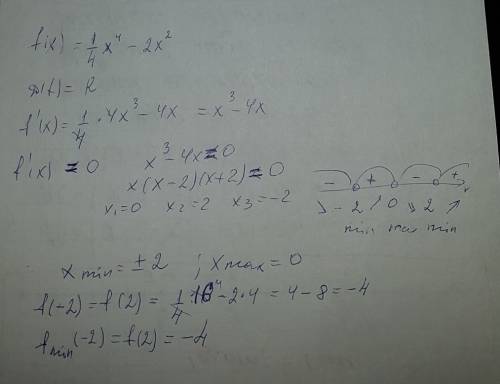 f(x) = 1/4 x⁴ - 2x²
D(f) = R
f'(x) = 1/4 · 4x³ - 4x = x³ - 4x
f'(x) = 0 x³ - 4x = 0
x(x-2)(x+2) = 0
x₁ = 0 x₂ = 2 x₃ = -2
- + - +
↘ -2 ↗ 0 ↘ 2 ↗
min max min
x min = ± 2 ; x max = 0
f(-2) = f(2) = 1/4 · 16 - 2·4 = 4 - 8 = -4
f min (-2) = f(2) = -4